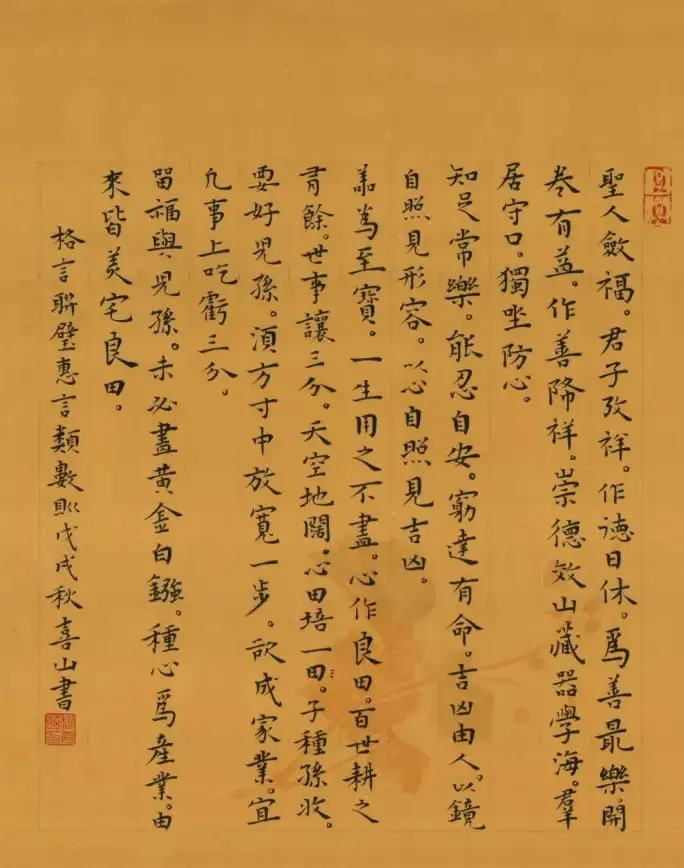 聖人斂福。君子攷祥。作德日休。爲善最樂。開
卷有益。作善降祥。崇德效山。藏器學海。羣
居守口。獨坐防心。
知足常樂。能忍自安。窮達有命。吉凶由人。以鏡
自照見形容。以心自照見吉凶。
善爲至寶。一生用之不盡。心作良田。百世耕之
有餘。世事讓三分。天空地闊。心田培一田。子種孫收。
要好兒孫。須方寸中放寬一步。欲成家業。宜
凡事上吃虧三分。
留福與兒孫。未必盡黃金白鏹。種心爲產業。由
來皆美宅良田。
格言聯璧惠言類數則戊戌秋喜山書